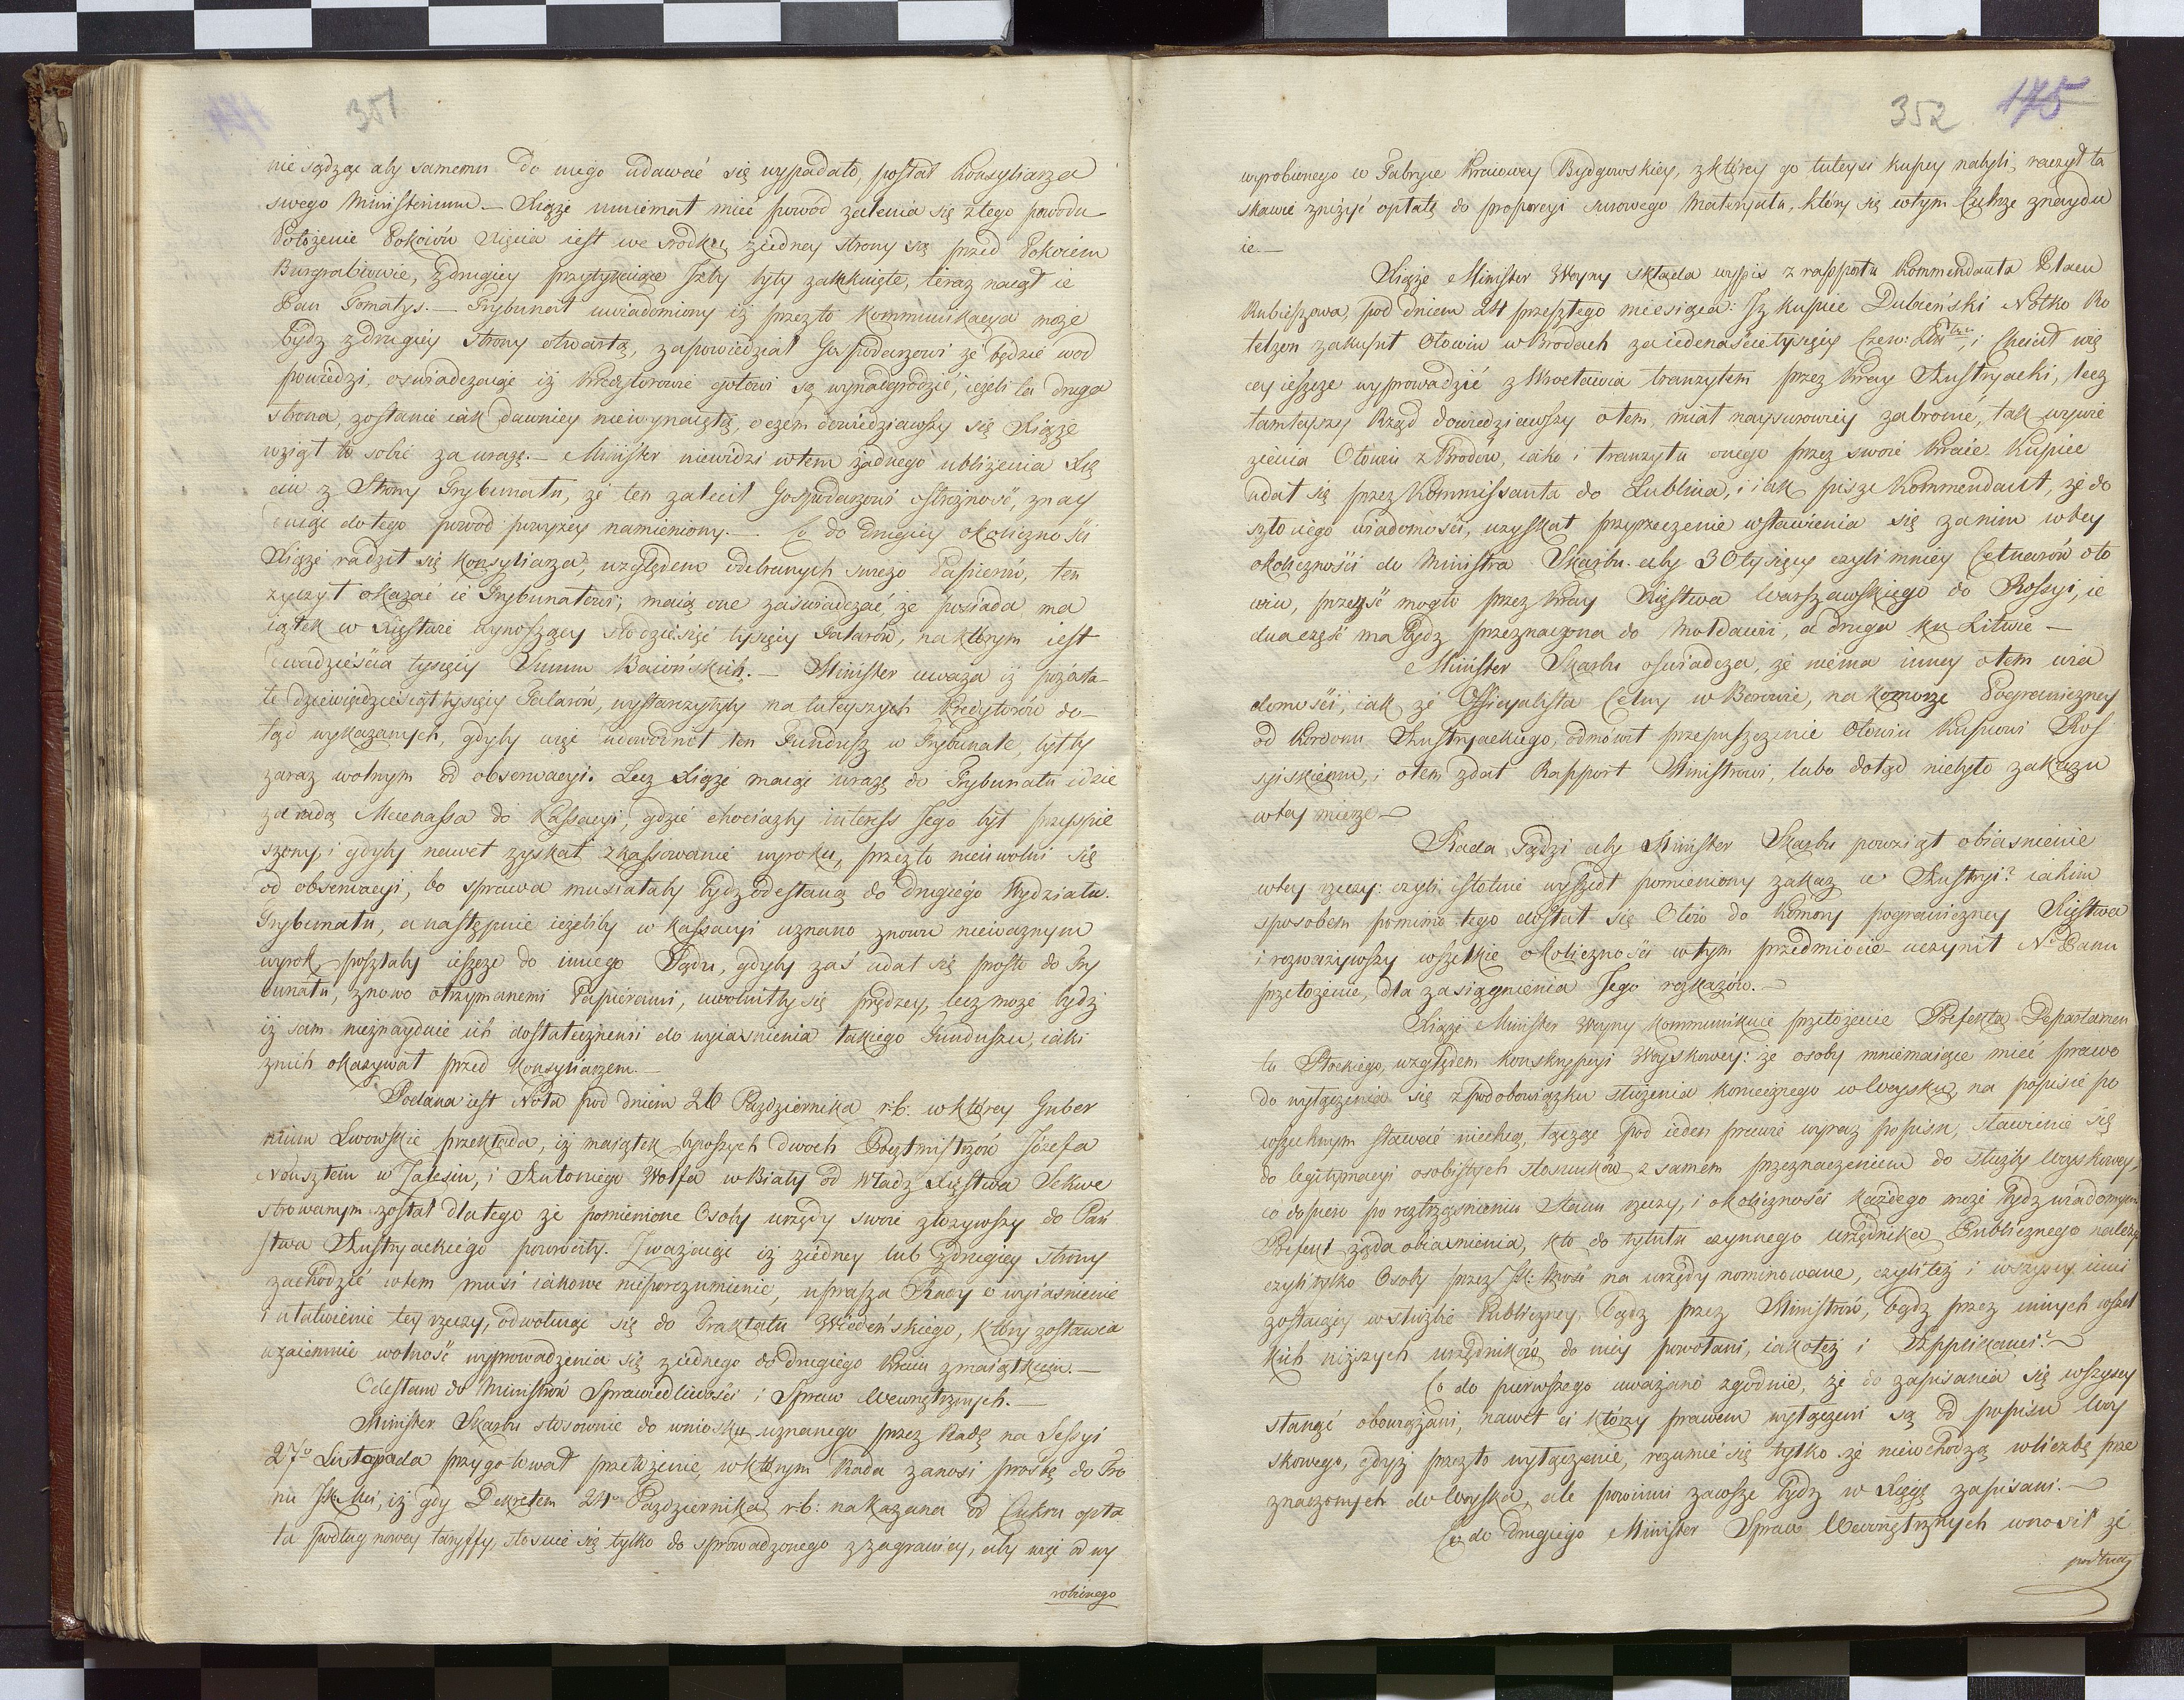 351
nie sądząc aby samemu do niego udawać się wypadało, posłał Konsyliarza
swego Ministerium. — Xiąże mniemał mieć powód żalenia się z tego powodu
Położenie Pokoiów Xięcia iest we srodku, z iedney strony są przed Pokoiem
Burgrabiowie, z drugiey przytykaiące Izby były zamknięte, teraz naiął ie
Pan Tomatys. — Trybunał uwiadomiony iż przezto kommunikacya może
bydz z drugiey strony otwartą, zapowiedział Gospodarzowi że będzie wod
powiedzi, oswiadczaiąc iż Kredytorowie gotowi są wynadgrodzić, ieżeli ta druga
strona, zostanie iak dawniey niewynaiętą, o czem dowiedziawszy się Xiąże
wziął to sobie za urazę. — Minister niewidzi wtem żadnego ubliżenia Xię
ciu z Strony Trybunału, że ten zalecił Gospodarzowi ostrożność, znay
duiąc do tego powód powyżey namieniony. — Co do drugiey okoliczności
Xiąże radził się Konsyliarza, względem odebranych swego Papierów, ten
życzył okazać ie Trybunałowi, maią one zaświadczać, że posiada ma
iątek w Xięstwie wynoszący stodziesięć tysięcy Talarów, na którym iest
dwadzieścia tysięcy Summ Baiońskich. — Minister uważa iż pozosta-
łe dziewięćdziesiąt tysięcy Talarów, wystarczyłyby na tuteyszych Kredytorów do-
tąd wykazanych, gdyby więc udowodnił ten Fundusz w Trybunale, byłby
zaraz wolnym od obserwacyi. Lecz Xiąże maiąc urazę do Trybunału idzie
za radą Mecenassa do Kassacyi, gdzie chociażby interess Jego był przyspie
szony, i gdyby nawet zyskał zkassowanie wyroku, przezto nieuwolni się
od obserwacyi, bo sprawa musiałaby bydz odesłaną do drugiego Wydziału
Trybunału, a następnie ieżeliby w Kassacyi uznano znowu nieważnym
wyrok poszłaby ieszcze do innego Sądu, gdyby zaś udał się prosto do Try
bunału, znowo otrzymanemi Papierami, uwolniłby się prędzey, lecz może bydź
iż sam nieznayduie ich dostatecznemi do wyiasnienia takiego Funduszu, iaki
znich okazywał przed Konsyliarzem. —
Podana iest Nota pod dniem 26 Pazdziernika r:b: w którey Guber
nium Lwowskie przekłada, iż maiątek byoszych dwoch Pocztmistrzów Józefa
Neusztein w Zalesiu, i Antoniego Wolfa w Biały od Władz Xięstwa Sekwe
strowanym został dlatego że pomienione Osoby urzędy swoie złożywszy do Pań
stwa Austryackiego powróciły. Zważaiąc iż z iedney lub z drugiey strony
zachodzić wtem musi iakowe nieporozumienie, uprasza Rady o wyiasnienie
i ułatwienie tey rzeczy, odwołuiąc się do Traktatu Wiedeńskiego, który zostawia
wzaiemnie wolność wyprowadzenia się z iednego do drugiego Kraiu z maiątkiem. —
Odesłano do Ministrów Sprawiedliwości i Spraw Wewnętrznych. —
Minister Skarbu stosownie do wniosku uznanego przez Radę na Sessyi
27go Listopada przygotował przełożenie, w którym Rada zanosi prośbę do Tro
nu JKMci, iż gdy Dekretem 24 Pazdziernika r:b: nakazana od Cukru opła
ta podług nowey taryffy, stosuie się tylko do sprowadzonego z zagranicy, aby więc od wy
robionego
352 175
wyrobionego w Fabryce Kraiowey Bydgowskiey, z którey go tuteysi kupcy nabyli, raczył ła
skawie zniżyć opłatę do proporcyi surowego Materyału, który się wtym Cukrze znaydu
ie. —
Xiąże Minister Woyny składa wypis z rapportu Kommendanta Placu
Rubieszowa, pod dniem 24 przeszłego miesiąca: Iż kupiec Dubieński Notko Ro
telzon zakupił Ołowiu w Brodach za iedenaście tysięcy Czerw: Złłch, i Chciał wię
cey ieszcze wyprowadzić z Wrocławia tranzytem przez Kray Austryacki, lecz
tamteyszy Rząd dowiedziawszy otem, miał naysurowiey zabronić, tak wywie
zienia Ołowiu z Brodów, iako i tranzytu onego przez swoie Kraie. Kupiec
udał się przez Kommissanta do Lublina, i iak pisze Kommendant, że do
szło iego wiadomości, uzyskał przyrzeczenie wstawienia się zanim wtey
okoliczności do Ministra Skarbu. aby 30 tysięcy czyli mniey Cetnarów oło
wiu, przeyść mogło przez Kray Xięstwa Warszawskiego do Rossyi, ie
dna część ma bydz przeznaczona do Mołdawii, a druga ku Litwie —
Minister Skarbu oswiadcza, że niema inney otem wia
domości, iak że Officyalista Celny w Berowie, na Komorze Pograniczney
od Kordonu Austryackiego, odmówił przepuszczenie Ołowiu Kupcowi Ros
syiskiemu, i otem zdał Rapport Ministrowi, lubo dotąd niebyło zakazu
wtey mierze —
Rada Sądzi aby Minister Skarbu powziął obiasnienie
wtey rzeczy: czyli istotnie wyszedł pomieniony zakaz w Austryi? iakim
sposobem pomimo tego dostał się Ołów do Komory pograniczney Xięstwa
i rozważywszy wszelkie okoliczności wtym przedmiocie uczynił N. Panu
przełożenie, dla zasiągnienia Jego rozkazów. —
Xiąże Minister Woyny kommunikuie przełożenie Prefekta Departamen
tu Płockiego, względem konskrypcyi Woyskowey: że osoby mniemaiące mieć prawo
do wyłączenia się zpodobowiązku służenia koniecznego w Woysku, na popisie po
wszechnym stawać niechcą, łącząc pod ieden prawie wyraz popisu, stawienie się
do legitymacyi osobistych stosunków z samem przeznaczeniem do służby Woyskowey,
co dopiero po roztrząśnieniu Stanu rzeczy, i okoliczności każdego może bydz wiadomym
Prefekt żąda obiasnienia, kto do tytułu czynnego urzędnika Publicznego należy
czyli tylko Osoby przez JK: Mość na urzędy nominowane, czyli też i wszyscy inni
zostaiący w służbie Publiczney, bądz przez Ministrów, bądz przez innych wszel
kich niższych urzędników do niey powołani, iakoteż i Applikanci? —
Co do pierwszego uważano zgodnie, że do zapisania się wszyscy
stanąć obowiązani, nawet ci którzy prawem wyłączeni są od popisu Woy
skowego, gdyż przezto wyłączenie, rozumie się tylko że niewchodzą w liczbę prze
znaczonych do Woyska, ale powinni zawsze bydz w Xięgę zapisani. —
Co do drugiego Minister Spraw Wewnętrznych wnosił że
podług